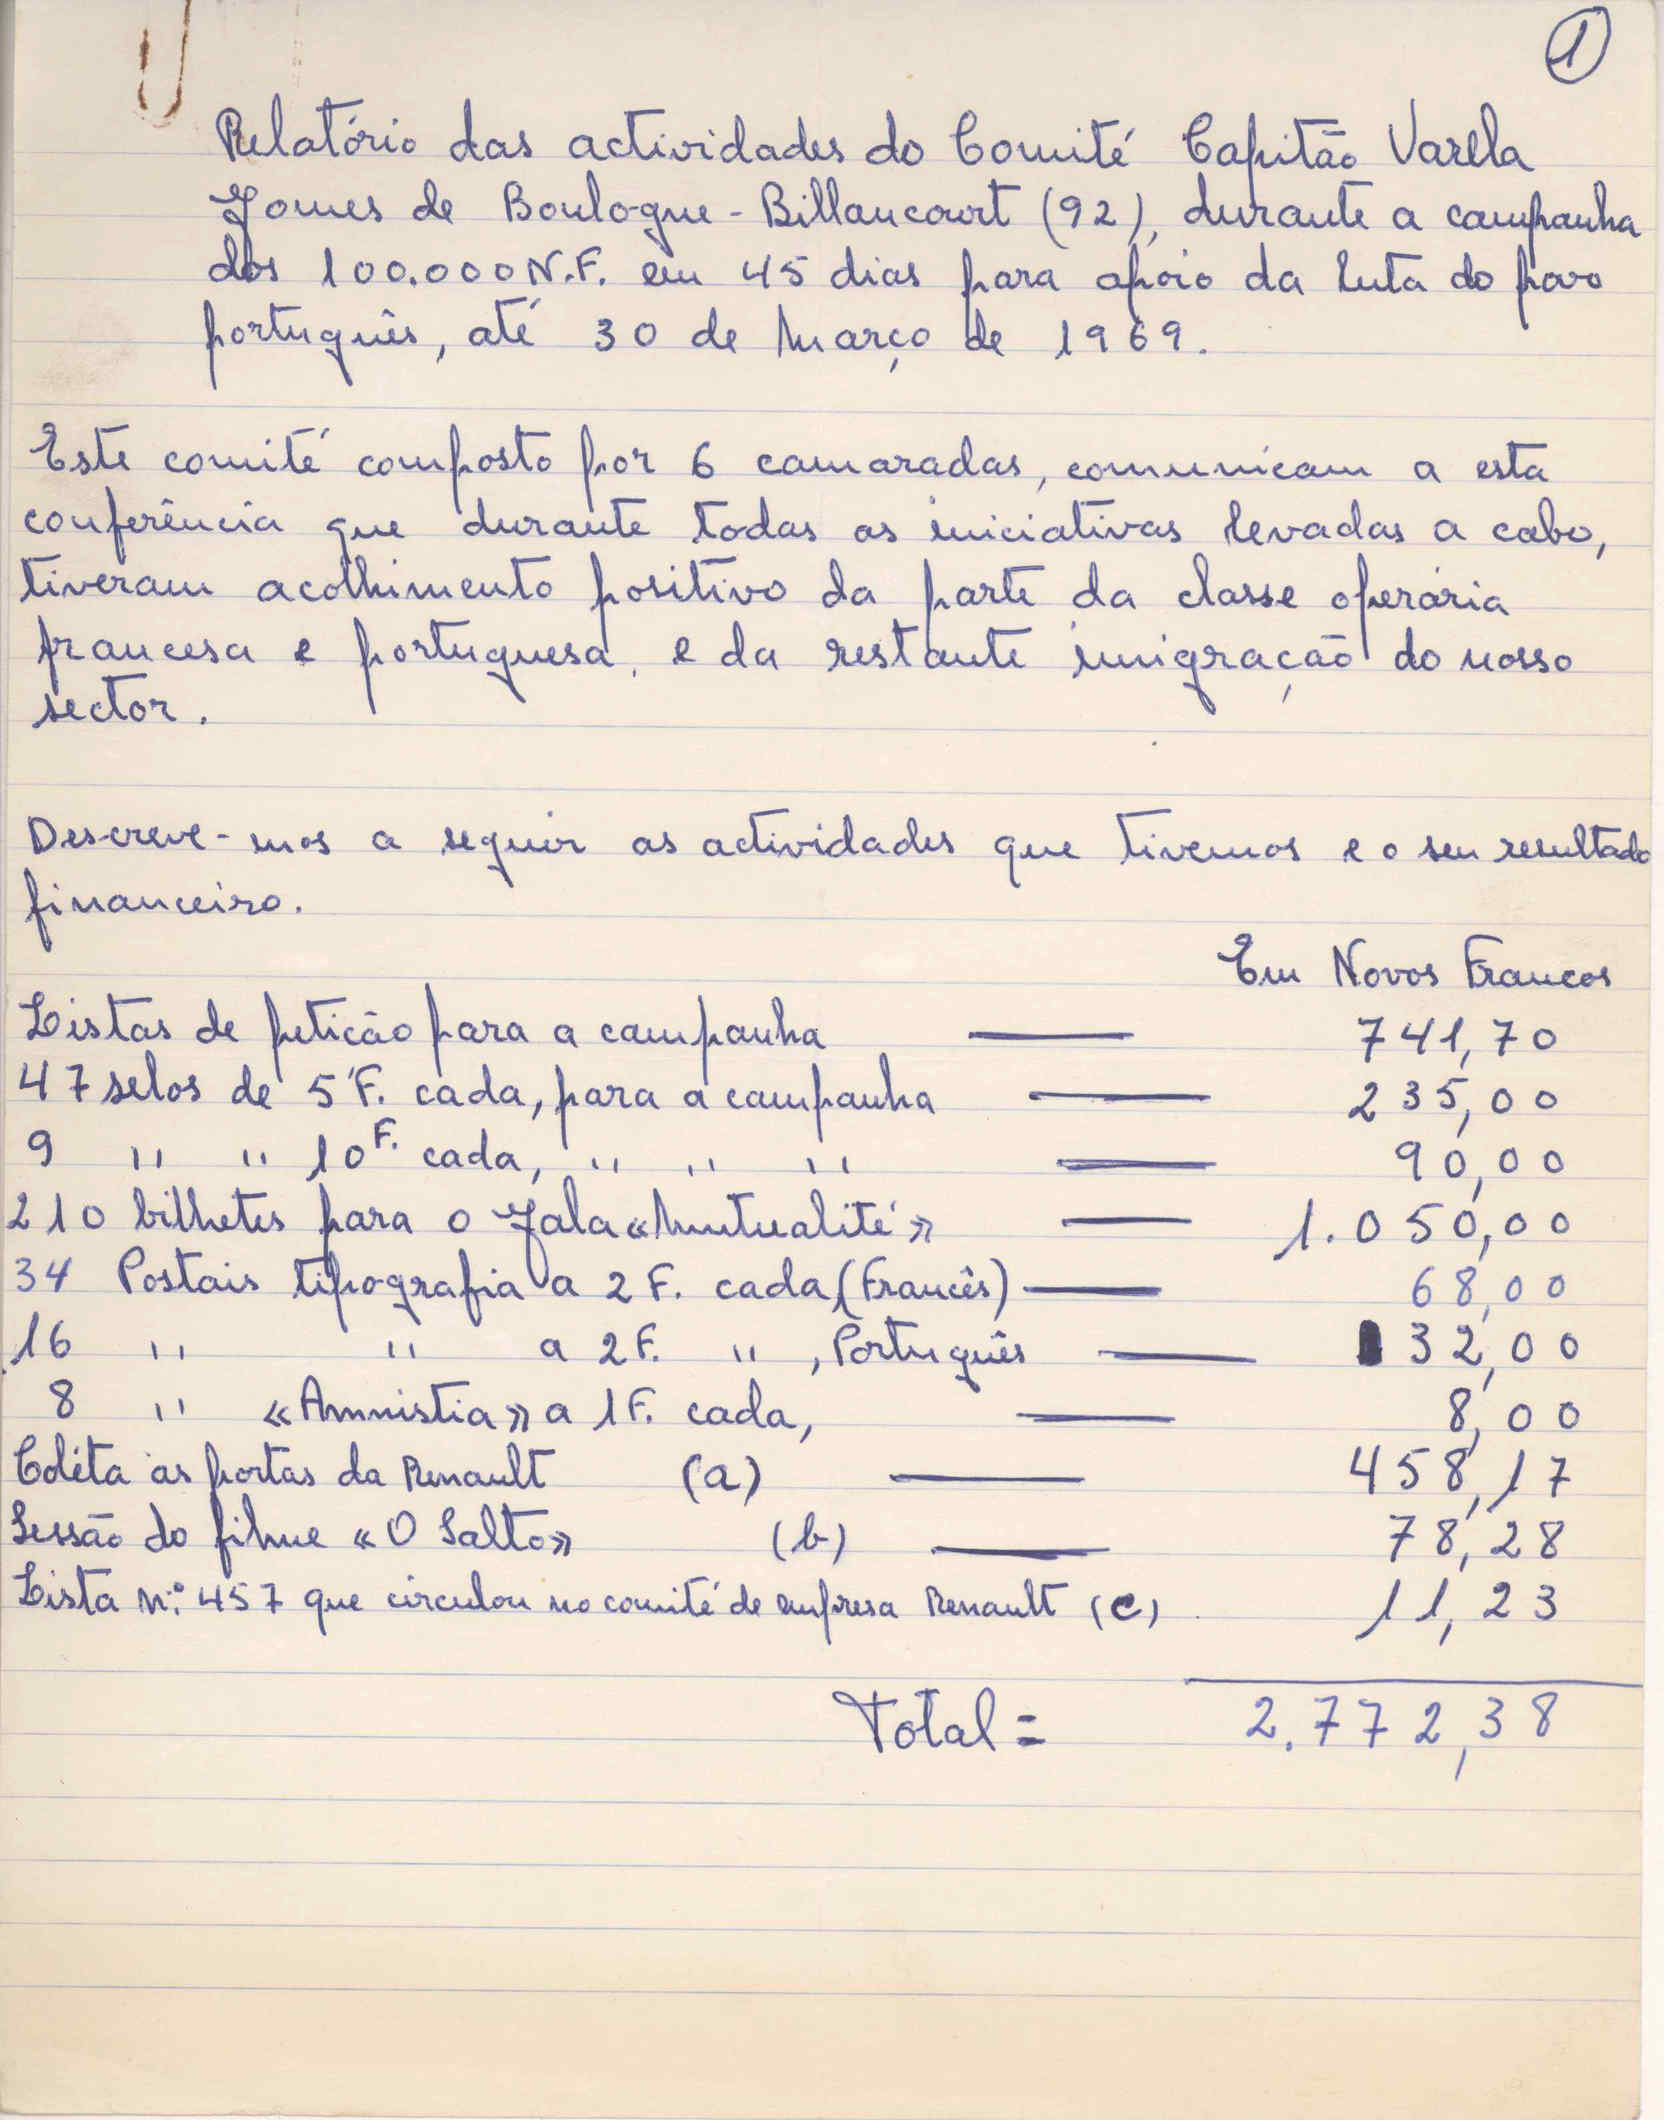 1
Relatório das actividades do Comité Capitão Varela
Gomes de Boulogne-Billancourt (92), durante a campanha
dos 100.000 N.F. em 45 dias para apoio da luta do povo
português, até 30 de Março de 1969.
Este comité composto por 6 camaradas, comunicam a esta
conferência que durante todas as iniciativas levadas a cabo,
tiveram acolhimento positivo da parte da classe operária
francesa e portuguesa, e da restante imigração do nosso
sector.
Descreve-mos a seguir as actividades que tivemos e o seu resultado
financeiro.
Em Novos Francos
Listas de petição para a campanha — 741,70
47 selos de 5 F. cada, para a campanha — 235,00
9 " " 10 F. cada, " " " — 90,00
210 bilhetes para o Gala «Mutualité» — 1.050,00
34 Postais tipografia a 2 F. cada (Francês) — 68,00
16 " " a 2 F. " , Português — 32,00
8 " «Amnistia» a 1 F. cada, — 8,00
Coléta às portas da Renault (a) — 458,17
Sessão do filme «O Salto» (b) — 78,28
Lista n.º 457 que circulou no comité de empresa Renault (c) 11,23
Total = 2.772,38